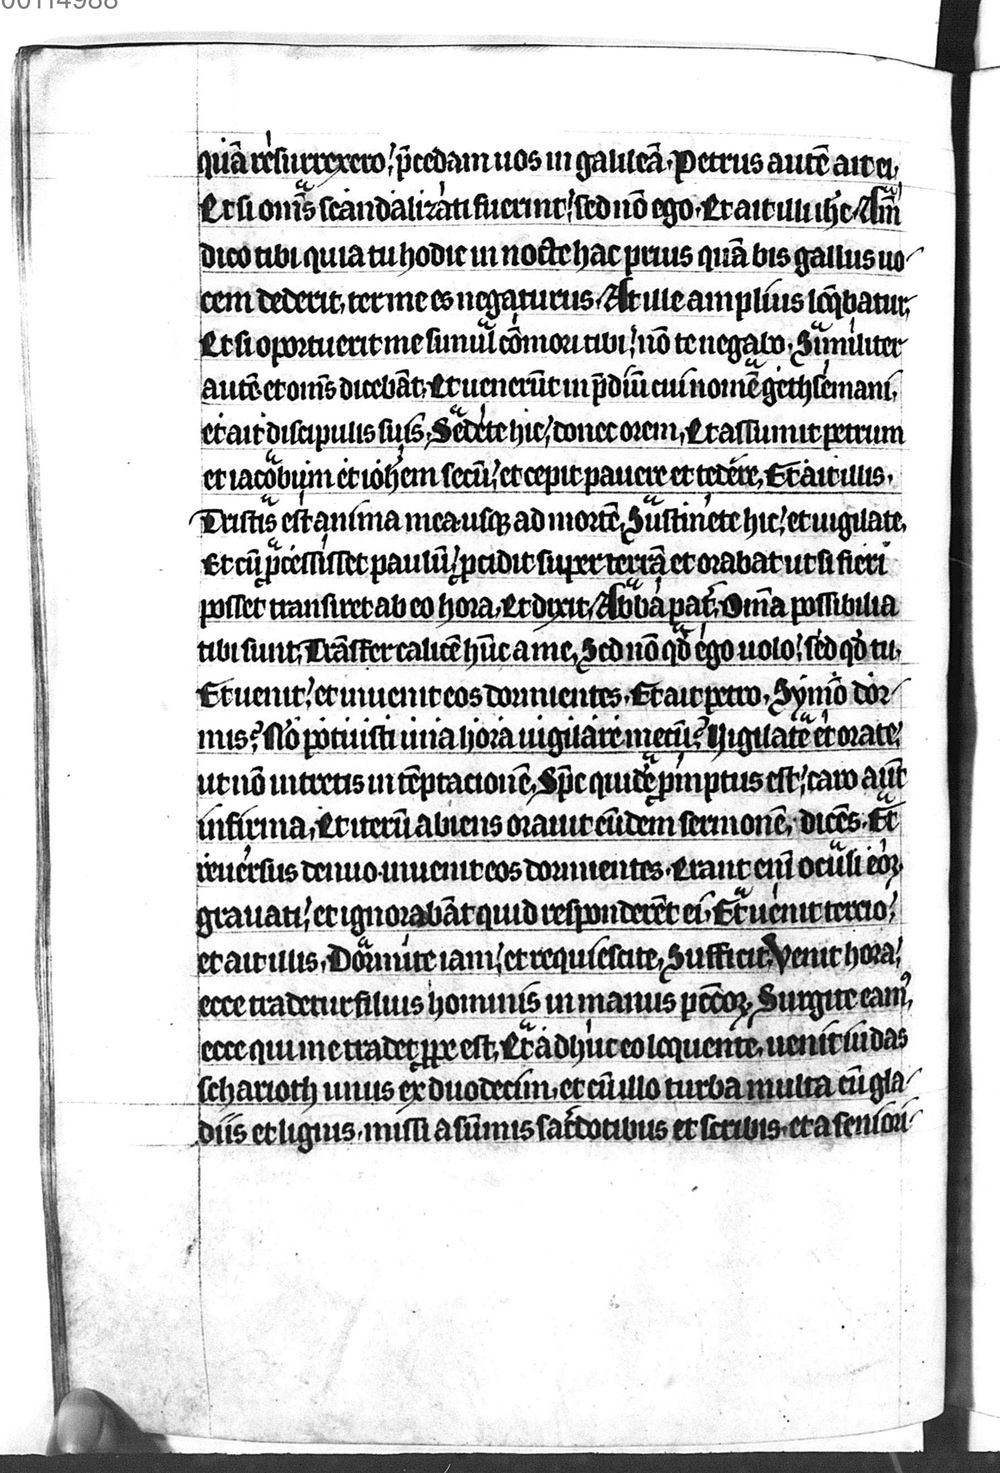 00114988
quā resurrexero, p̄cedam uos in galileā. Petrus autē ait ei.
Et si om̄s scandalizati fuerint, sed nō ego. Et ait illi ihc. Am̄
dico tibi quia tu hodie in nocte hac prius quā bis gallus uo
cem dederit, ter me es negaturus. At ille amplius loq̄batur.
Et si oportuerit me simul cōmori tibi, nō te negabo. Similiter
autē et om̄s dicebāt. Et uenerūt in p̄diū cui nomē gethsemani,
et ait discipulis suis. Sedete hic, donec orem. Et assumit petrum
et iacobum et ioh̄em secū, et cepit pauere et tedere. Et ait illis.
Tristis est anima mea usq; ad mortē. Sustinete hic, et uigilate.
Et cū p̄cessisset paulū, ꝓcidit super terrā et orabat ut si fieri
posset transiret ab eo hora. Et dixit. Abba pat̄. Om̄a possibilia
tibi sunt. Trāsfer calicē hūc a me. Sed nō qd̄ ego uolo, sed qd̄ tu.
Et uenit, et inuenit eos dormientes. Et ait petro. Symō dor
mis? Nō potuisti una hora uigilare mecū? Uigilate et orate,
ut nō intretis in tēptacionē. Sp̄c quidē ꝓmptus est, caro aūt
infirma. Et iterū abiens orauit eūdem sermonē, dicēs. Et
reuersus denuo inuenit eos dormientes. Erant eni oculi eoꝝ
grauati, et ignorabāt quid responderēt ei. Et uenit tercio,
et ait illis. Dormite iam, et requiescite. Sufficit. Venit hora,
ecce tradetur filius hominis in manus pccōꝝ. Surgite eam᷒,
ecce qui me tradet ꝓpe est. Et adhuc eo loquente, uenit iudas
scharioth unus ex duodecim, et cū illo turba multa cū gla
diis et lignis, missi a sūmis sac̄dotibus et scribis, et a seniori